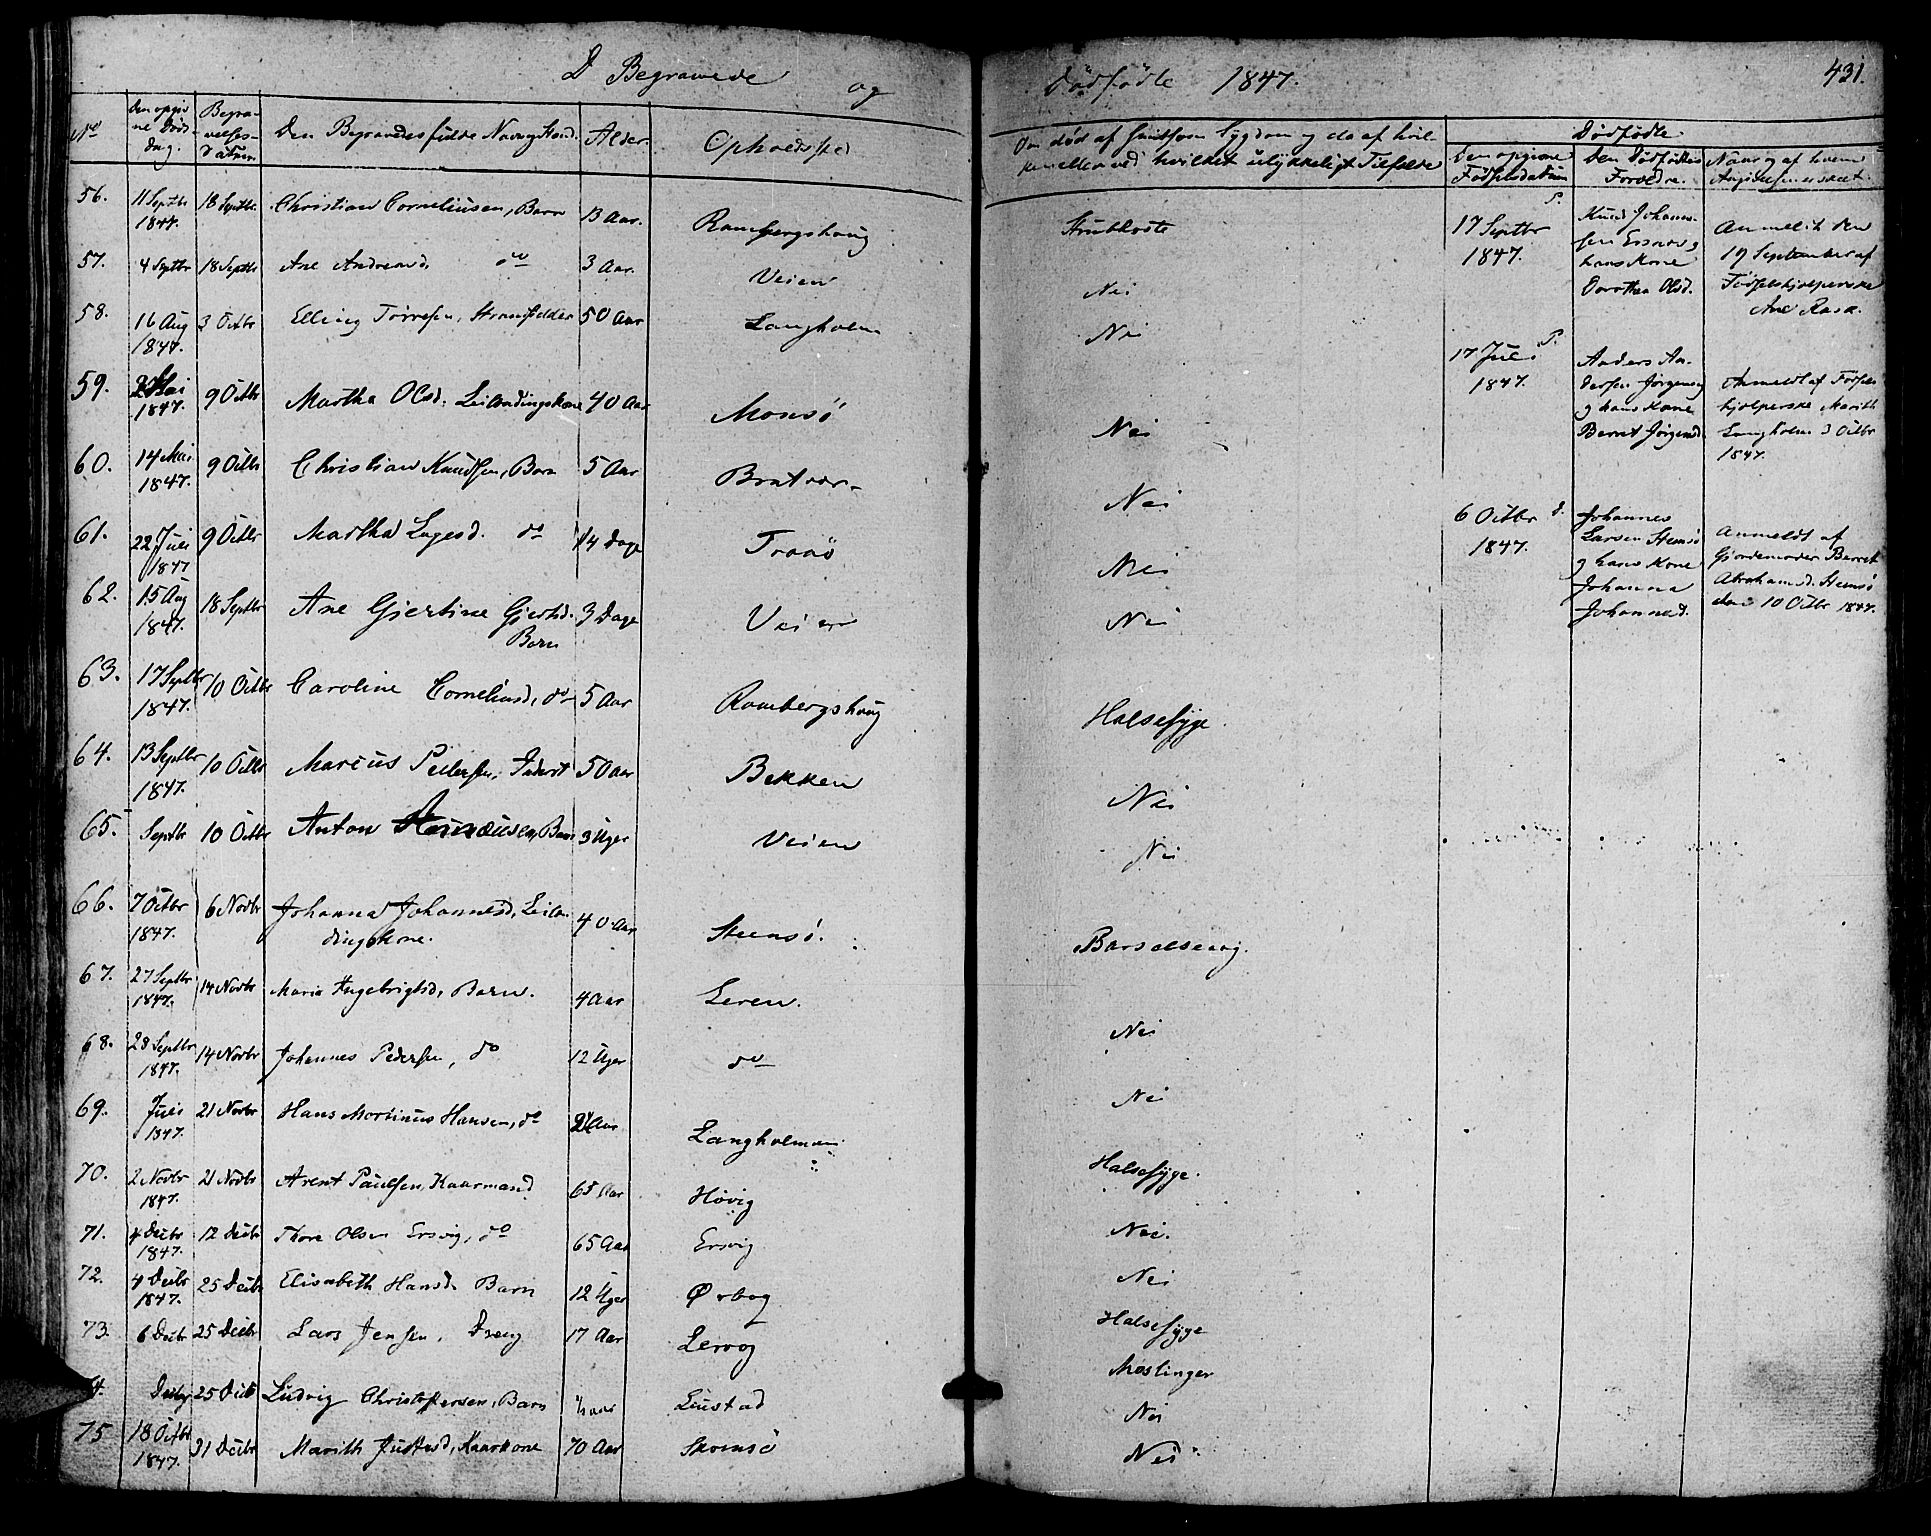 D Begravede og Dødfødte 1847. 431.
No Den opgivne Døds Dag. Begravelses-Datum Den Begravedes fulde Navn og Stand. Alder. Opholdssted Om død af Sygdom og da af hvilken eller ved hvilket ulykkeligt Tilfælde
Dødfødte.
Den opgivne Fødselsdatum Den Dødfødtes Forældre. Naar og af hvem
56. 11 Septbr 1847. 18 Septbr. Christian Corneliusen, Barn 13 Aar. Rambergshaug Strubhoste
57. 4 Septbr 18 Septbr Ane Andreasd. do 3 Aar Veien Nei
58. 16 Aug 1847. 3 Octbr Elling Torresen, Strandsidder 50 Aar Langholm Nei
59. Mai 1847. 9 Octbr Martha Olsd. Leilændingskone 40 Aar Monsø Nei
60. 14 Mai 1847. 9 Octbr Christian Knudsen, Barn 5 Aar Bratvær Nei
61. 22 Juli 1847 9 Octbr Martha Lagesd. do 14 Dage Traaø Nei
62. 15 Aug 1847. 18 Septbr Ane Gjertine Gjertsd. Barn 3 Dage Veien Nei
63. 17 Septbr 1847. 10 Octbr Caroline Corneliusd, do 5 Aar Rambergshaug Halsesyge.
64. 13 Septbr 1847. 10 Octbr Marcus Pedersen, Inderst 50 Aar Bekken Nei
65. Septbr 10 Octbr Anton Barn 3 Uger Veien Nei
66. 7 Octbr 1847. 6 Novbr Johanna Johannesd, Leilændingskone. 40 Aar Steensø. Barselseng.
67. 27 Septbr 1847. 14 Novbr Maria Ingebrigtsd, Barn. 4 Aar Leren. Nei
68. 28 Septbr 1847. 14 Novbr Johannes Pedersen, do 12 Uger do Nei
69. Juli 1847. 21 Novbr Hans Martinus Hansen, do Aar Langholmen Halsesyge.
70. 2 Novbr 1847. 21 Novbr Arent Paulsen, Kaarmand 65 Aar Høvig Nei.
71. 4 Decbr 1847. 12 Decbr Thore Olsen Ersvig, do 65 Aar Ersvig Nei
72. 4 Decbr 1847. 25 Decbr Elisabeth Hansd. Barn 12 Uger Ørbog Halsesyge
73. 6 Decbr 25 Decbr Lars Jensen, Dreng 17 Aar Lervog Meslinger
Decbr 25 Decb Ludvig Christophersen, Barn Aar Liustad Nei
75 18 Octbr 1847. 31 Decbr Marith Kaarkone 70 Aar Skomsø Nei
17 Septbr 1847. Knud Johannesen Ersnes og hans Kone Dorothea Olsd. Anmeldt den 19 September af Fødselshjelperske Ane Rasa.
17 Juli 1847. Anders Andersen Jørgenvog og hans Kone Berret Jørgensd. Anmeldt af Fødselshjelperske Marith Langholm 3 Octbr 1847.
6 Octbr 1847. Johannes Larsen Steensø og hans Kone Johanna Johannesd. Anmeldt af Gjordemoder Berret Abrahamsd. Steensø den 10 Octbr 1847.